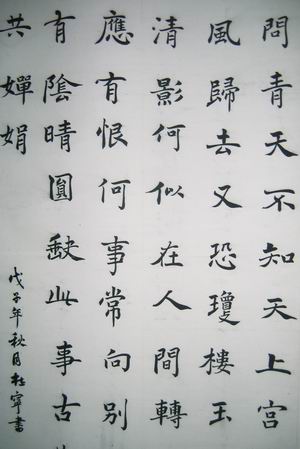 問青天不知天上宮
風歸去又恐瓊樓玉
清影何似在人間轉
應有恨何事常向別
有陰晴圓缺此事古
共嬋娟
戊子年秋月杜寧書